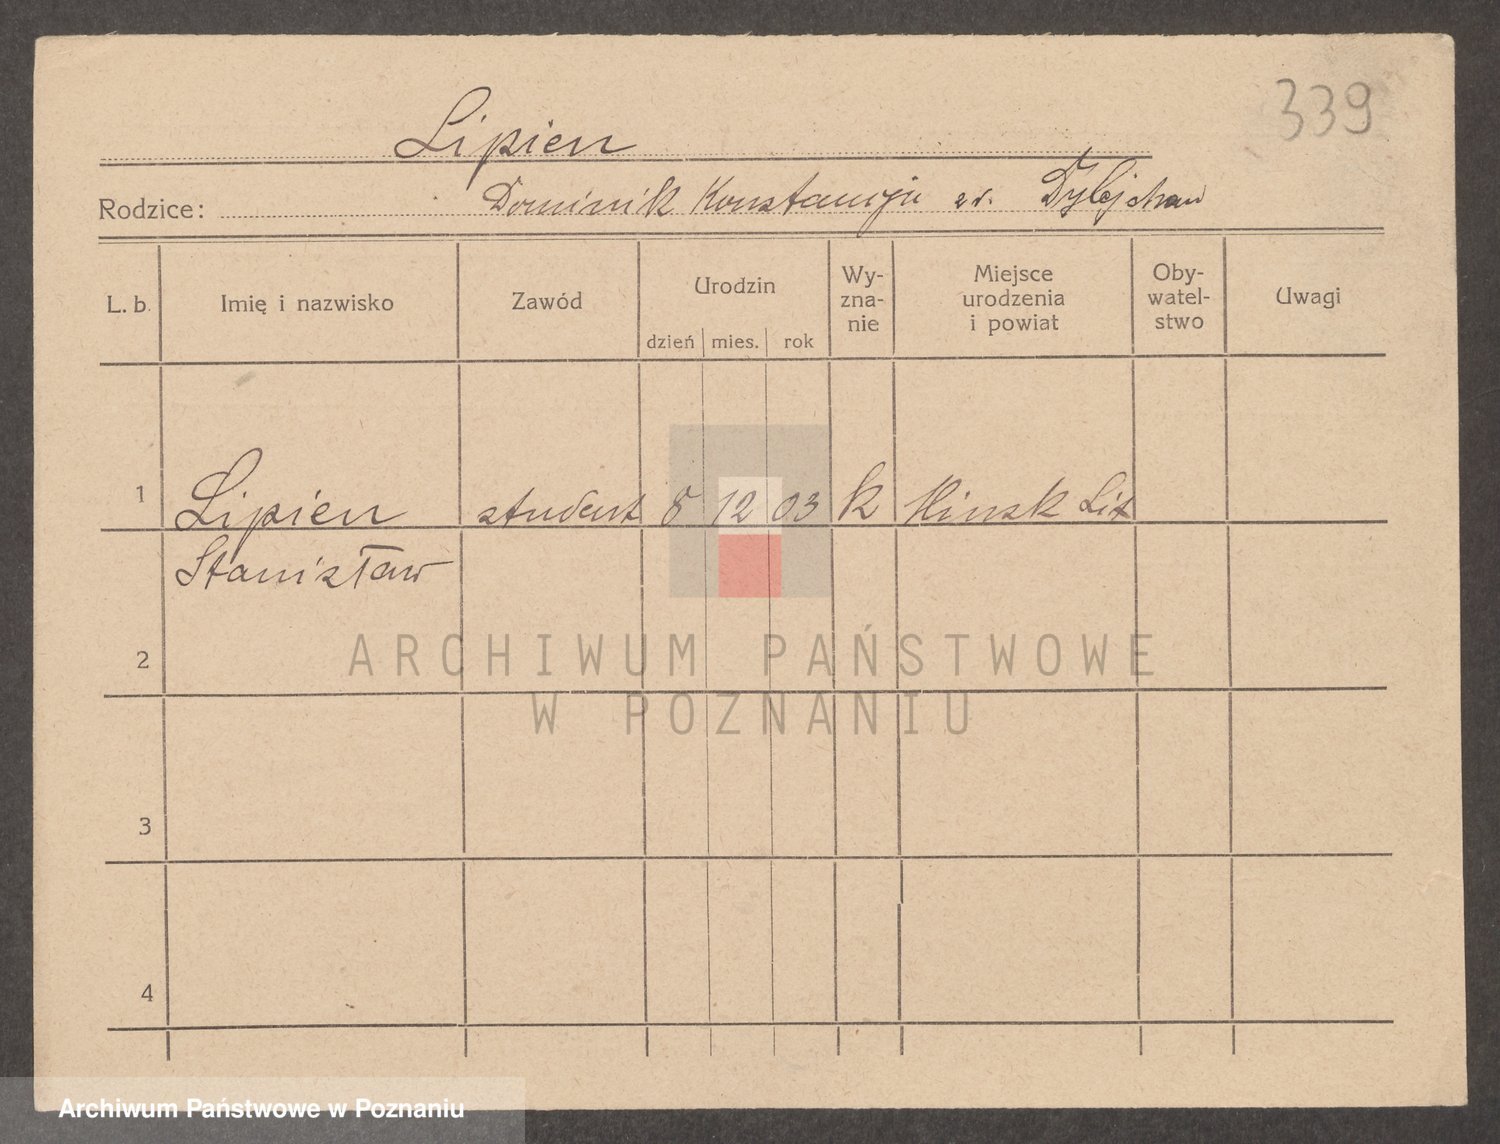 339
Lipien
Rodzice: Dominik Konstancja zd.
L. b. Imię i nazwisko Zawód Urodzin dzień mies. rok Wy-zna-nie Miejsce urodzenia i powiat Oby-watel-stwo Uwagi
1 Lipien student 8 12 03 k Minsk Lit
Stanisław
2
3
4
ARCHIWUM PAŃSTWOWE
W POZNANIU
Archiwum Państwowe w Poznaniu